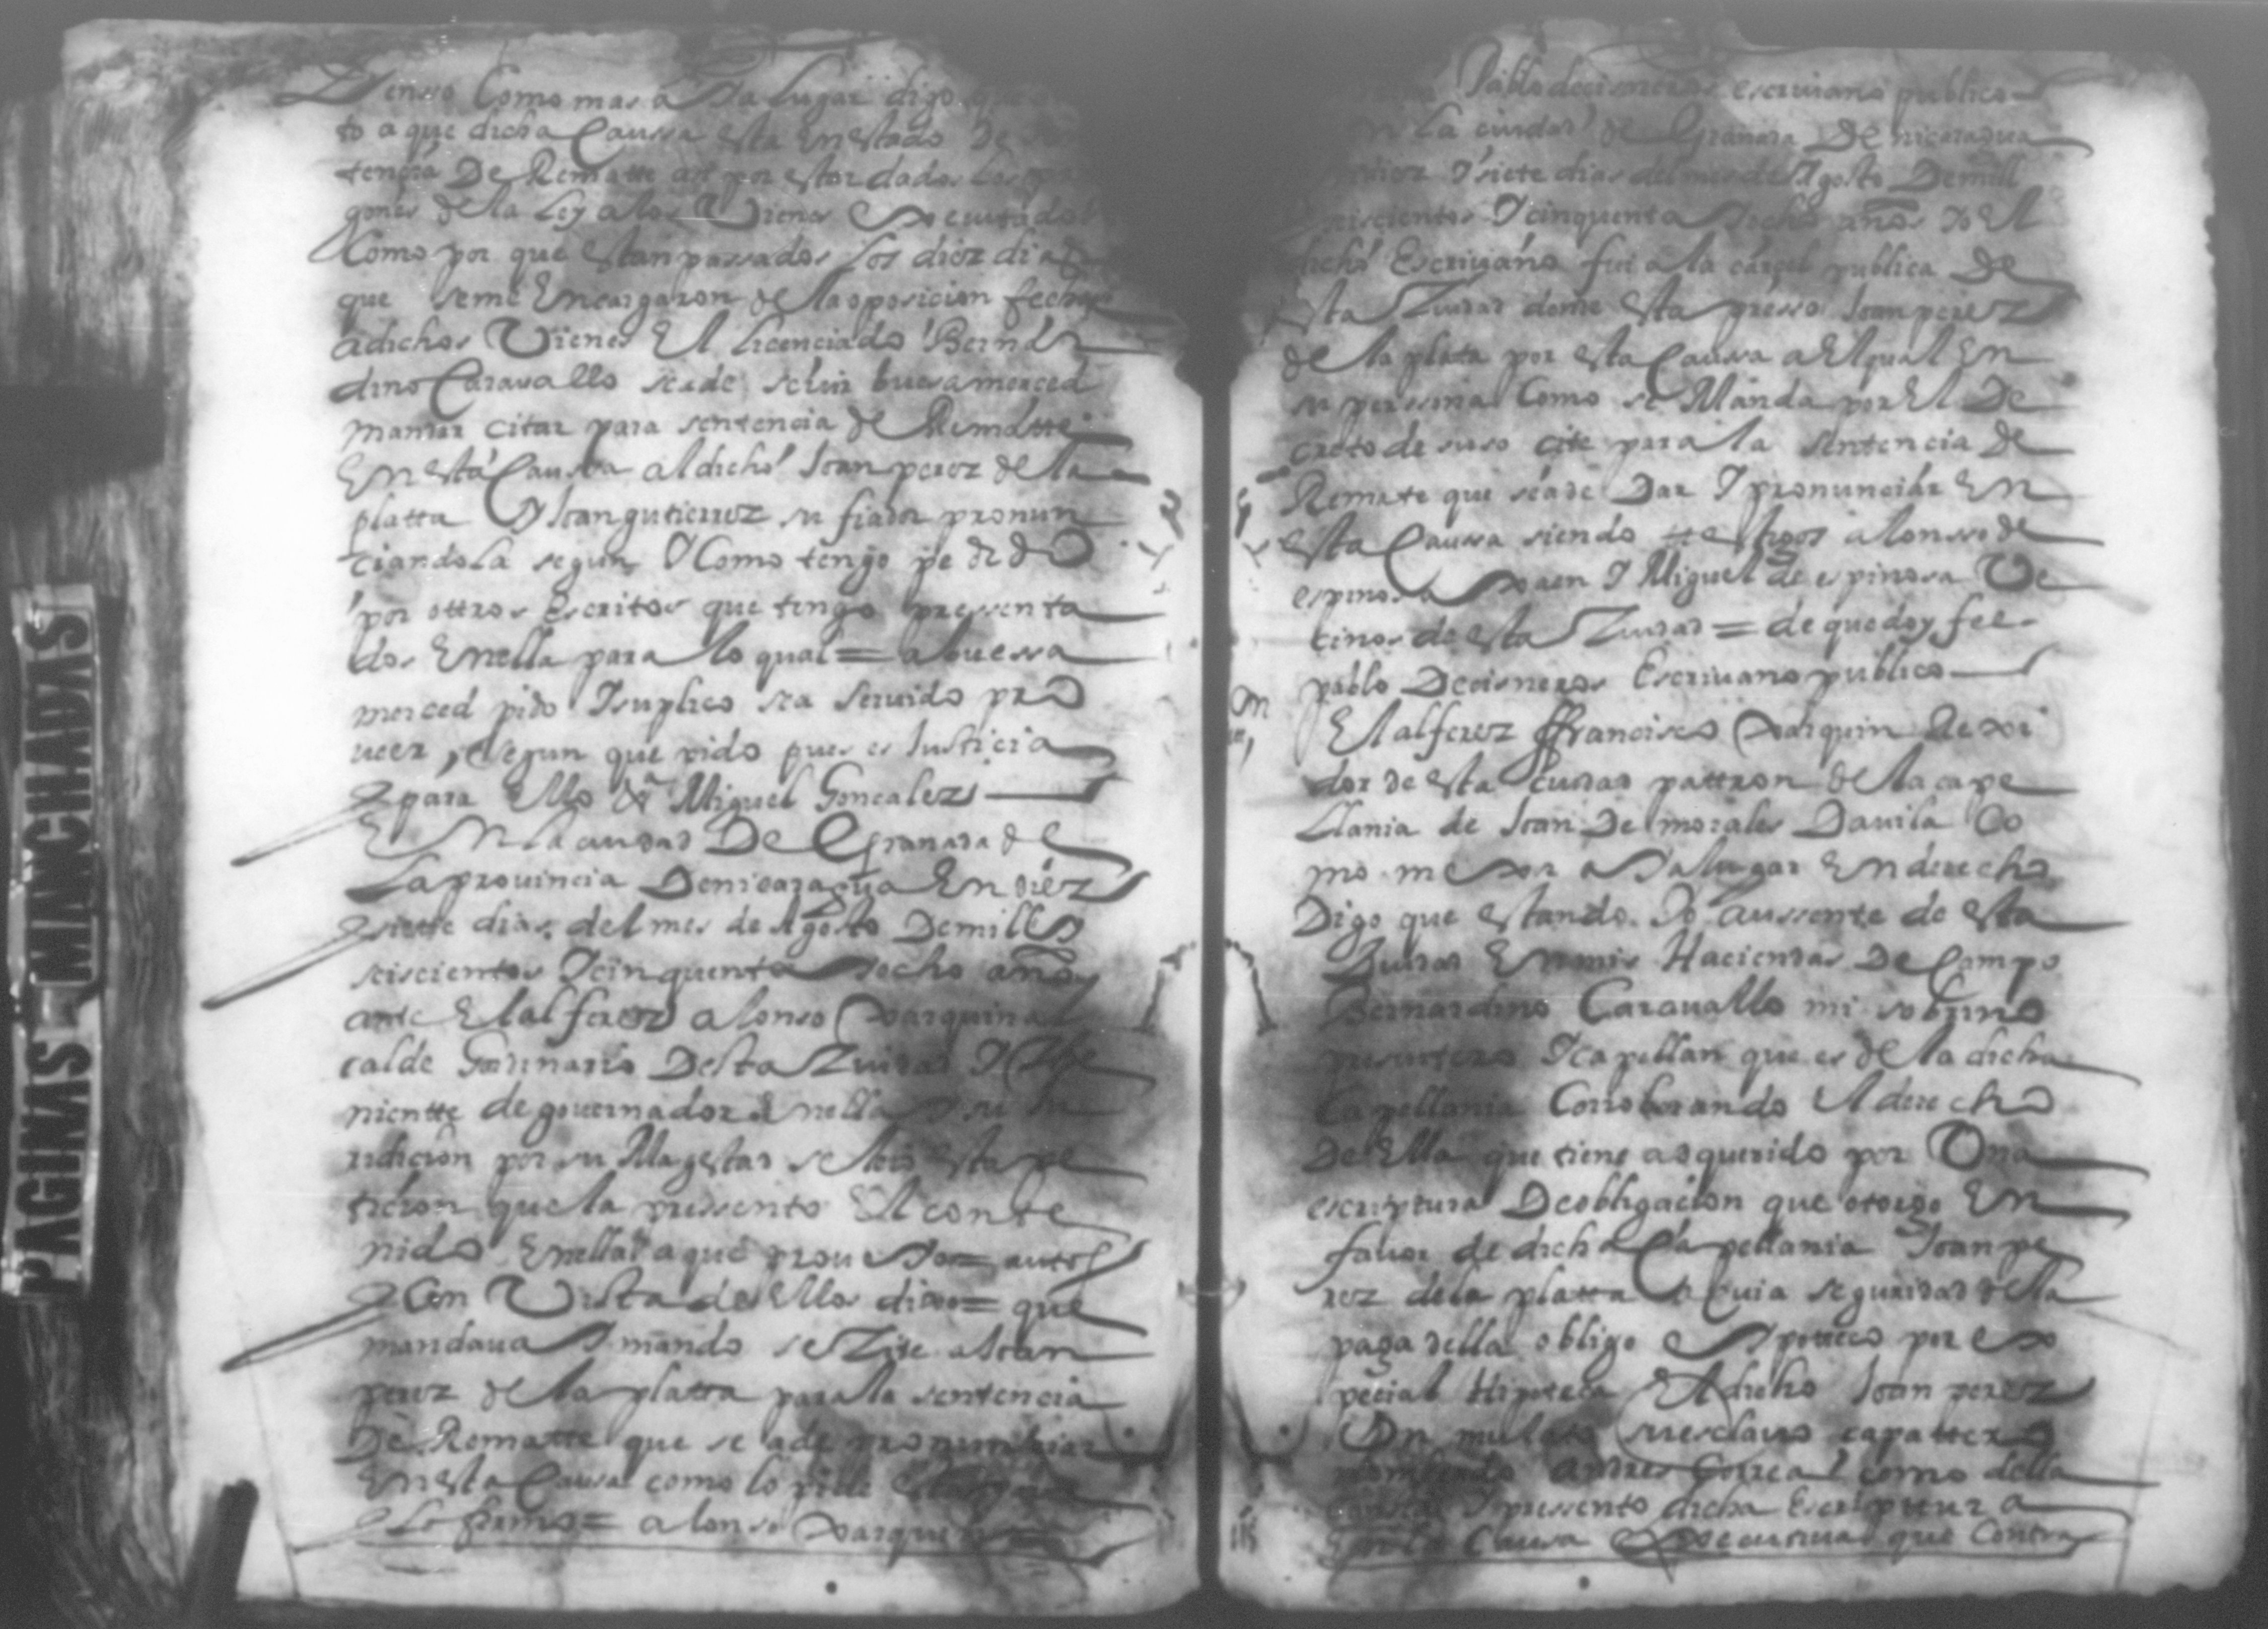 como mas aya lugar digo que
to a que dicha Caussa esta En estado De
tencia De Rematte asi por estar dados Los
gones de la Ley a los Vienes Executados
Como por que estan passados Los diez dias
que se me Encargaron de la oposicion fecha
a dichos Vienes El licenciado Bernar
dino Caravallo
mandar citar para sentencia de Rematte
En esta Caussa al dicho Joan perez de la
platta Y Joan gutierrez su fiador pronun
ciandola segun Y Como tengo pedido
por ottros Escritos que tengo pressenta
dos En ella para lo qual = a buessa
merced pido Y suplico sea servido pro
ueer, segun que pido pues es Justicia
para Ello Miguel Goncalez
En la ciudad De Granada de
La prouincia De nicaragua En diez
Y siette dias del mes de Agosto De mill Y
seiscientos Y cinquenta Y ocho años
ante El alferez alonso Xarquin al
calde hordinario Desta Ziudad Y The
nientte de gouernador En ella Y su Ju
ridicion por su Magestad se leio esta pe
ticion que la pressento El conte
nido En ella a que proueyo = autos
Y Con Vista de Ellos dixo = que
mandaua Y mando se Zite a Joan
perez de la platta para la sentencia
De Rematte que se a de pronunciar
En esta Caussa como lo pide
Y Lo firmo = alonso Xarquin
Pablo de cisneros escriuano publico
En La ciudad de Granada De nicaragua
En diez Y siete dias del mes de Agosto De mill
Y seiscientos Y cinquenta Y ocho años Yo El
dicho Escriuano fui a la carcel publica De
esta Ziudad donde esta presso Joan perez
de la plata por esta Caussa a El qual En
su perssona Como se Manda por El De
creto de suso cite para la sentencia de
Remate que se a de Dar Y pronunciar En
esta Caussa siendo testigos alonsso de
espinossa Y Miguel de espinosa Ve
cinos de esta Ziudad = de que doy fee
pablo De cisneros Escriuano publico
El alferez ffrancisco Xarquin Rexi
dor de esta ciudad pattron de la cape
llania de Joan De morales Dauila Co
mo mexor aya lugar En derecho
Digo que estando Yo aussente de esta
Ziudad En mis Haciendas De Campo
Bernardino Carauallo mi sobrino
presuitero Y capellan que es de la dicha
Capellania Corroborando El derecho
De Ella que tiene adquerido por Vna
escriptura De obligacion que otorgo En
fauor de dicha Capellania Joan pe
rez de la platta A cuia seguridad della
paga della obligo e Ypoteco por ex
pecial Hipoteca El dicho Joan perez
Vn mulato su esclauo capattero
nombrado Andres Correa como della
consta Y pressento dicha Escriptura
En la Caussa Executiua que Contra
PAGINAS MANCHADAS